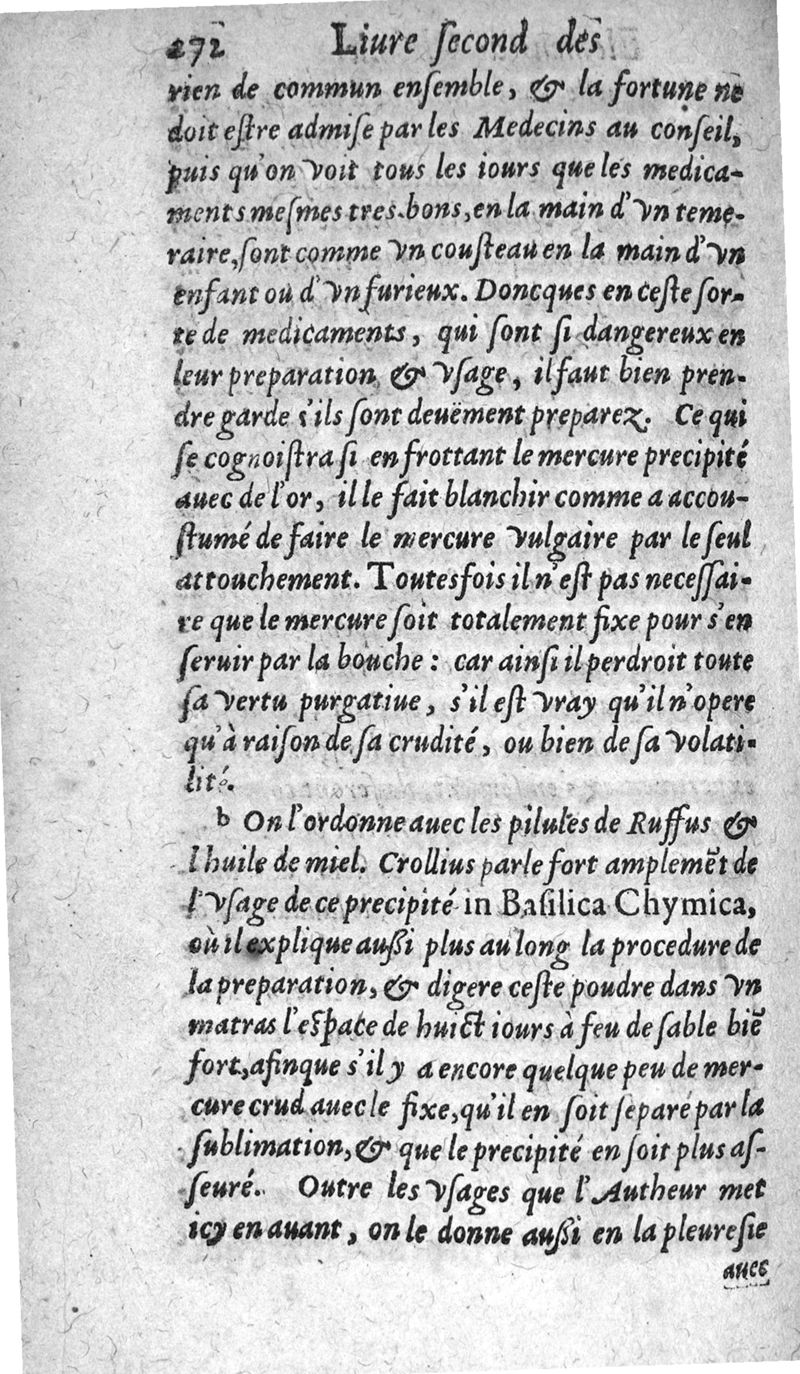 272 Liure ſecond des
rien de commun enſemble, & la fortune ne
doit eſtre admiſe par les Medecins au conſeil,
puis qu'on voit tous les iours que les medica-
ments meſmes tres-bons, en la main d'vn teme-
raire, ſont comme vn couſteau en la main d'vn
enfant ou d'vn furieux. Doncques en ceſte ſor-
te de medicaments, qui ſont ſi dangereux en
leur preparation & vſage, il faut bien pren-
dre garde s'ils ſont deuëment preparez. Ce qui
ſe cognoiſtra ſi en frottant le mercure precipité
auec de l'or, il le fait blanchir comme a accou-
ſtumé de faire le mercure vulgaire par le ſeul
attouchement. Toutesfois il n'eſt pas neceſſai-
re que le mercure ſoit totalement fixe pour s'en
ſeruir par la bouche : car ainſi il perdroit toute
ſa vertu purgatiue, s'il eſt vray qu'il n'opere
qu'à raiſon de ſa crudité, ou bien de ſa volati-
lité.
b On l'ordonne auec les pilules de Ruffus &
l'huile de miel. Crollius parle fort amplemēt de
l'vſage de ce precipité in Baſilica Chymica,
où il explique auſſi plus au long la procedure de
la preparation, & digere ceſte poudre dans vn
matras l'eſpace de huict iours à feu de ſable biē
fort, afin que s'il y a encore quelque peu de mer-
cure crud auec le fixe, qu'il en ſoit ſeparé par la
ſublimation, & que le precipité en ſoit plus aſ-
ſeuré. Outre les vſages que l'Autheur met
icy en auant, on le donne auſſi en la pleureſie
auec